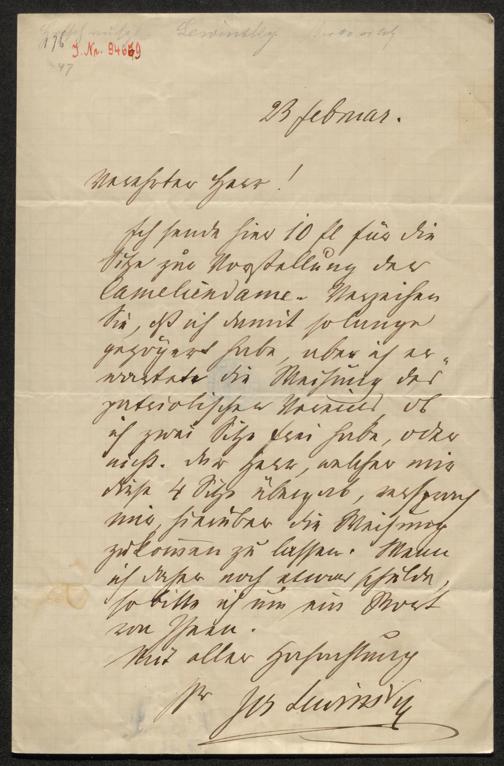 Lewinsky
176
J. Nr. 94669
47
23 Februar.
Verehrter Herr!
Ich sende hier 10 fl für die
Sitze zur Vorstellung der
Cameliendame. Verzeihen
Sie, daß ich damit solange
gezögert habe, aber ich er-
wartete die Weisung des
patriotischen Vereines, ob
ich zwei Sitze frei habe, oder
nicht. Der Herr, welcher mir
diese 4 Sitze übergab, versprach
mir, hierüber die Weisung
zukommen zu lassen. Wenn
ich daher noch etwas schulde,
so bitte ich um ein Wort
von Ihnen.
Mit aller Hochachtung
Ihr Jos Lewinsky